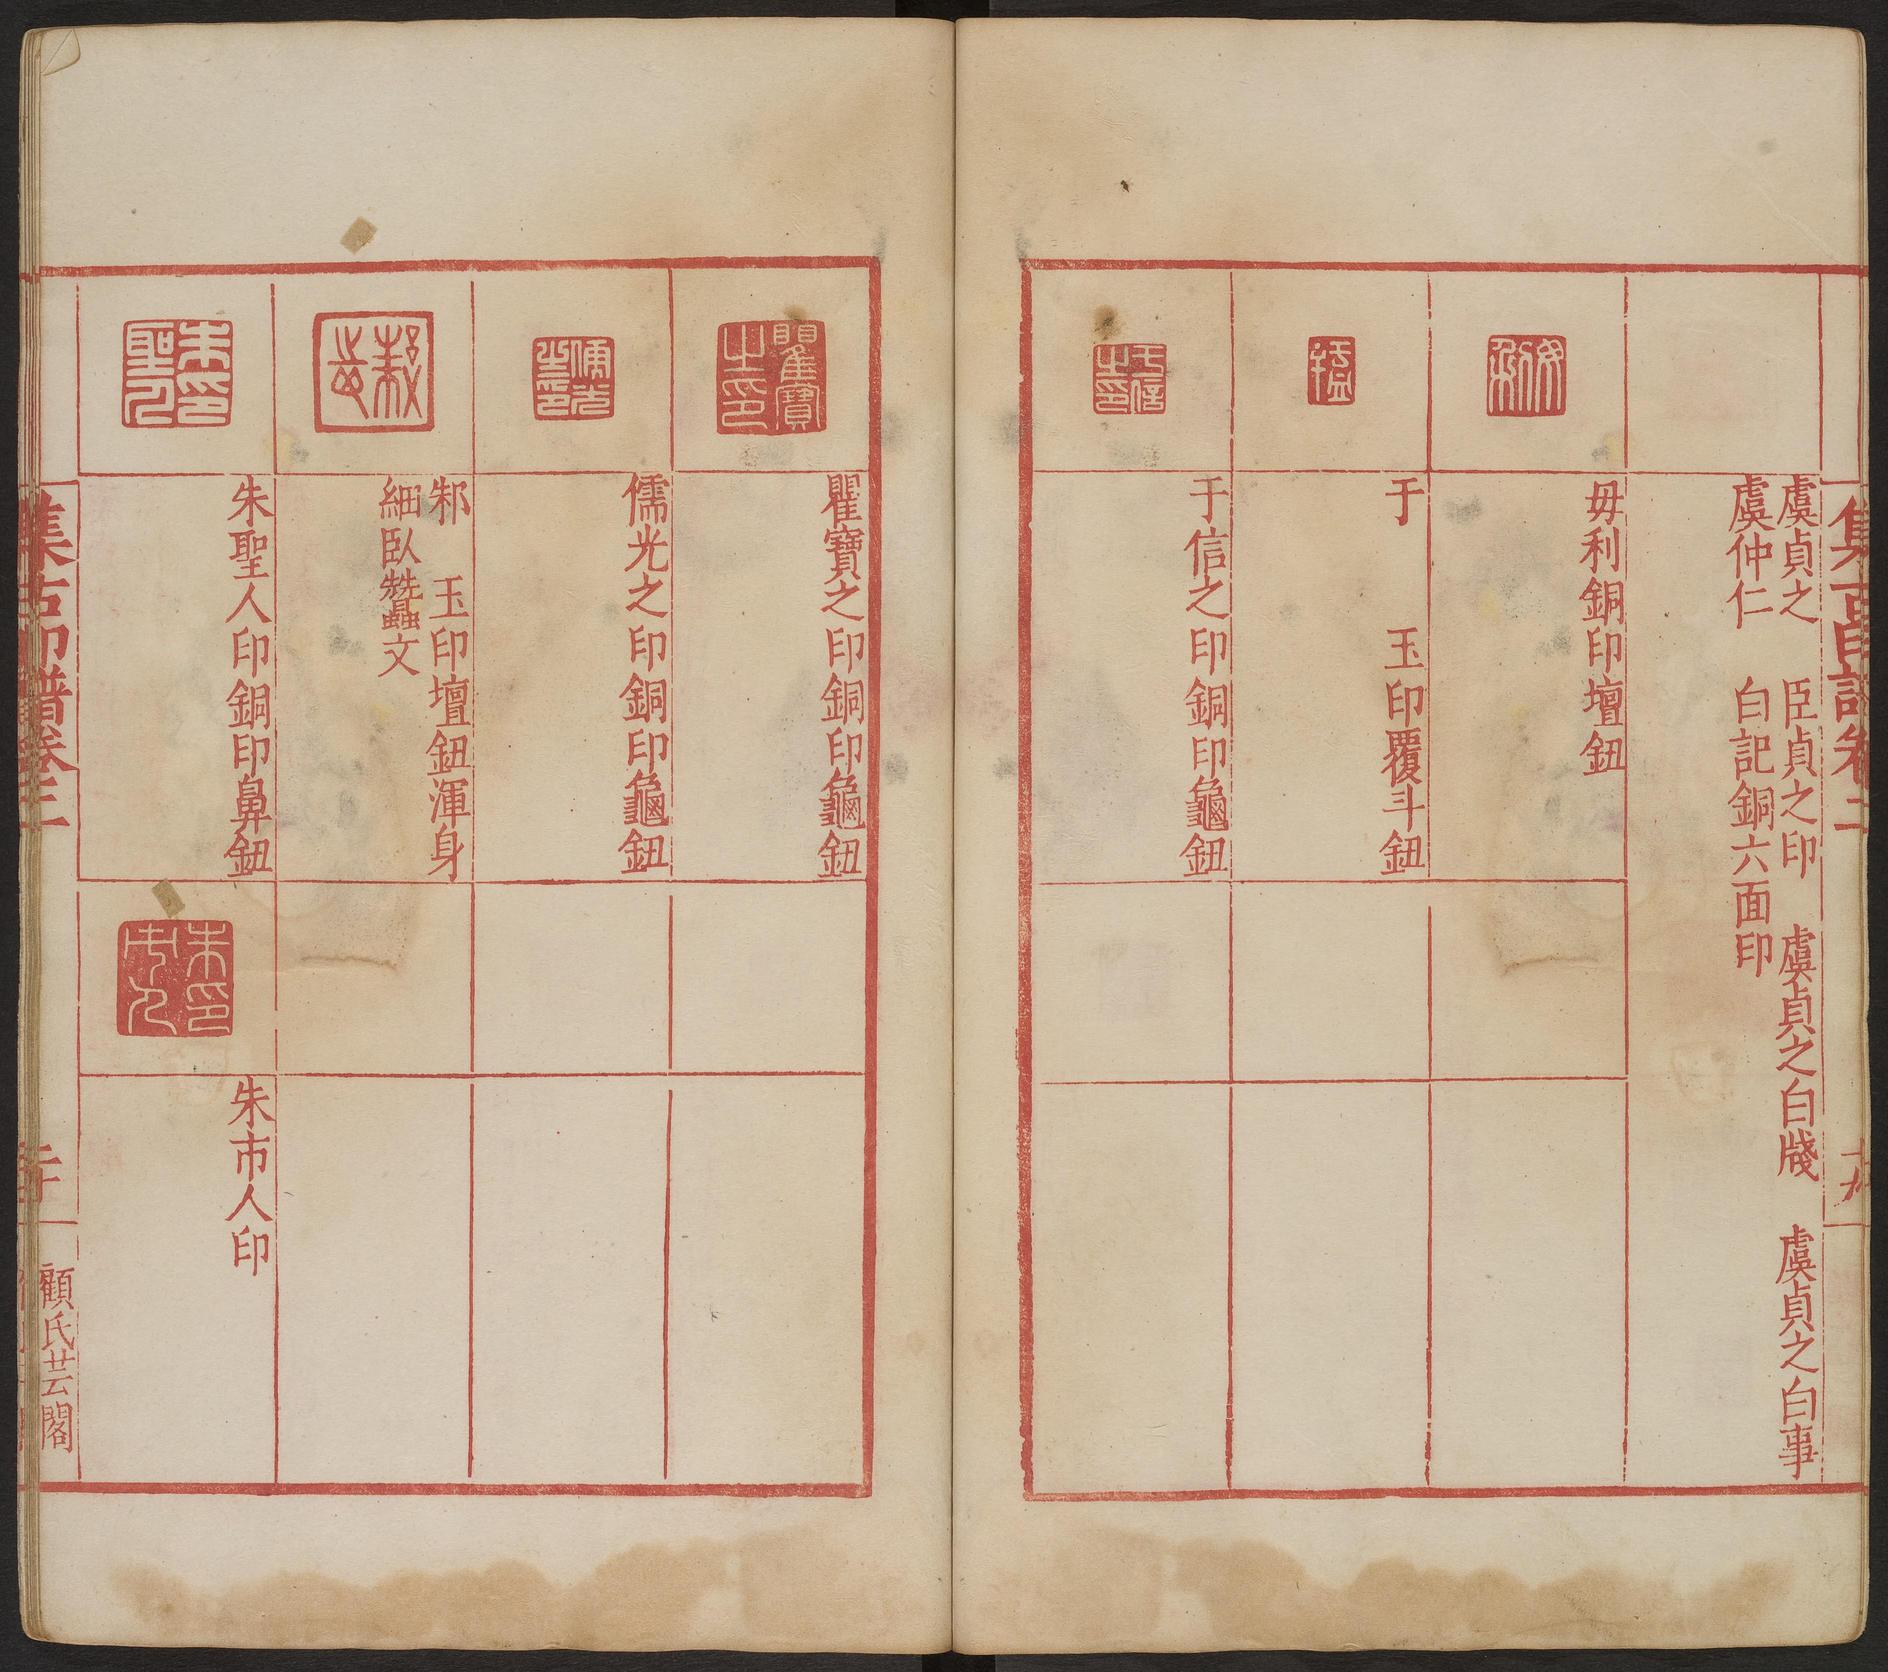 集古印譜卷二
虞貞之　臣貞之印　虞貞之白牋　虞貞之白事
虞仲仁　白記銅六面印
毋利銅印壇鈕
于　玉印覆斗鈕
于信之印銅印龜鈕
瞿寶之印銅印龜鈕
儒光之印銅印龜鈕
邾　玉印壇鈕渾身
細臥蠶文
朱聖人印銅印鼻鈕
朱市人印
集古印譜卷二
顧氏芸閣